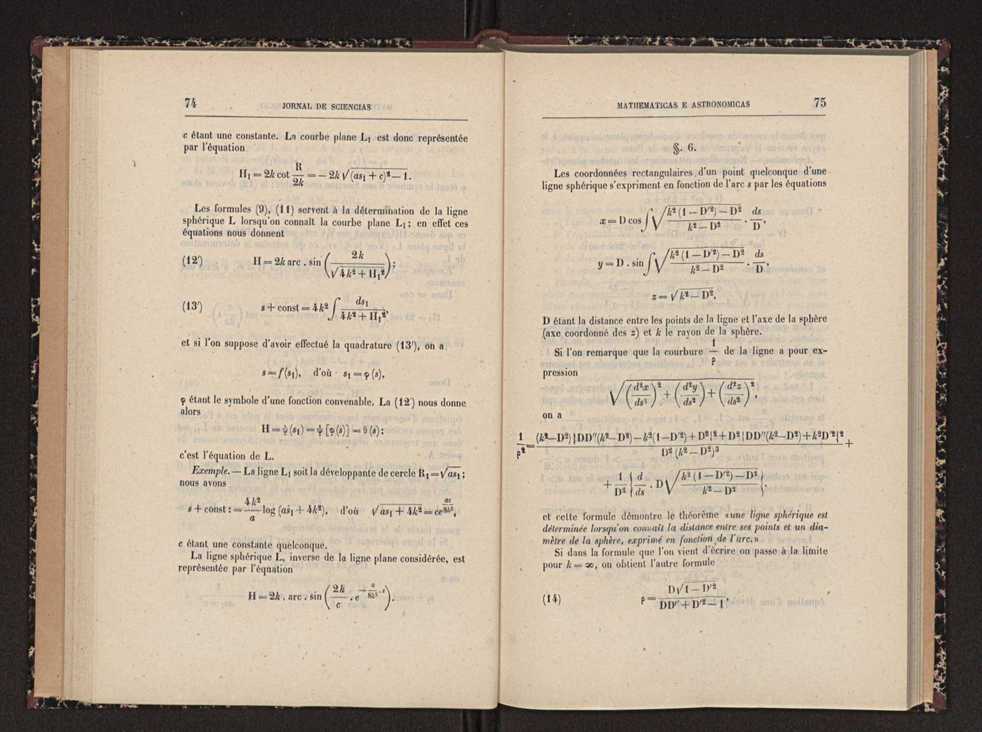 74 JORNAL DE SCIENCIAS
c étant une constante. La courbe plane L₁ est donc représentée
par l'équation
H₁ = 2k cot R/2k = − 2k √((as₁ + c)² − 1).
Les formules (9), (11) servent à la détermination de la ligne
sphérique L lorsqu'on connaît la courbe plane L₁; en effet ces
équations nous donnent
(12') H = 2k arc . sin (2k/√(4k² + H₁²));
(13') s + const = 4k² ∫ ds₁/(4k² + H₁²),
et si l'on suppose d'avoir effectué la quadrature (13'), on a
s = f(s₁), d'où s₁ = φ (s),
φ étant le symbole d'une fonction convenable. La (12') nous donne
alors
H = ψ (s₁) = ψ [φ (s)] = θ (s);
c'est l'équation de L.
Exemple. — La ligne L₁ soit la développante de cercle R₁ = √as₁;
nous avons
s + const: = 4k²/a log (as₁ + 4k²), d'où √(as₁ + 4k²) = ce^(as/8k²),
c étant une constante quelconque.
La ligne sphérique L, inverse de la ligne plane considérée, est
représentée par l'équation
H = 2k . arc . sin (2k/c . e^(−a/8k² · s)).
MATHEMATICAS E ASTRONOMICAS 75
§. 6.
Les coordonnées rectangulaires d'un point quelconque d'une
ligne sphérique s'expriment en fonction de l'arc s par les équations
x = D cos ∫ √((k² (1 − D'²) − D²)/(k² − D²)) . ds/D,
y = D . sin ∫ √((k² (1 − D'²) − D²)/(k² − D²)) . ds/D,
z = √(k² − D²),
D étant la distance entre les points de la ligne et l'axe de la sphère
(axe coordonné des z) et k le rayon de la sphère.
Si l'on remarque que la courbure 1/ρ de la ligne a pour ex-
pression
√((d²x/ds²)² + (d²y/ds²)² + (d²z/ds²)²),
on a
1/ρ² = ((k²−D²){DD''(k²−D²)−k²(1−D'²)+D²}²+D²{DD''(k²−D²)+k²D'²}²)/(D² (k²−D²)³) +
+ 1/D² {d/ds . D √((k² (1 − D'²) − D²)/(k² − D²))}²,
et cette formule démontre le théorème «une ligne sphérique est
déterminée lorsqu'on connaît la distance entre ses points et un dia-
mètre de la sphère, exprimé en fonction de l'arc.»
Si dans la formule que l'on vient d'écrire on passe à la limite
pour k = ∞, on obtient l'autre formule
(14) ρ = D√(1 − D'²)/(DD'' + D'² − 1),